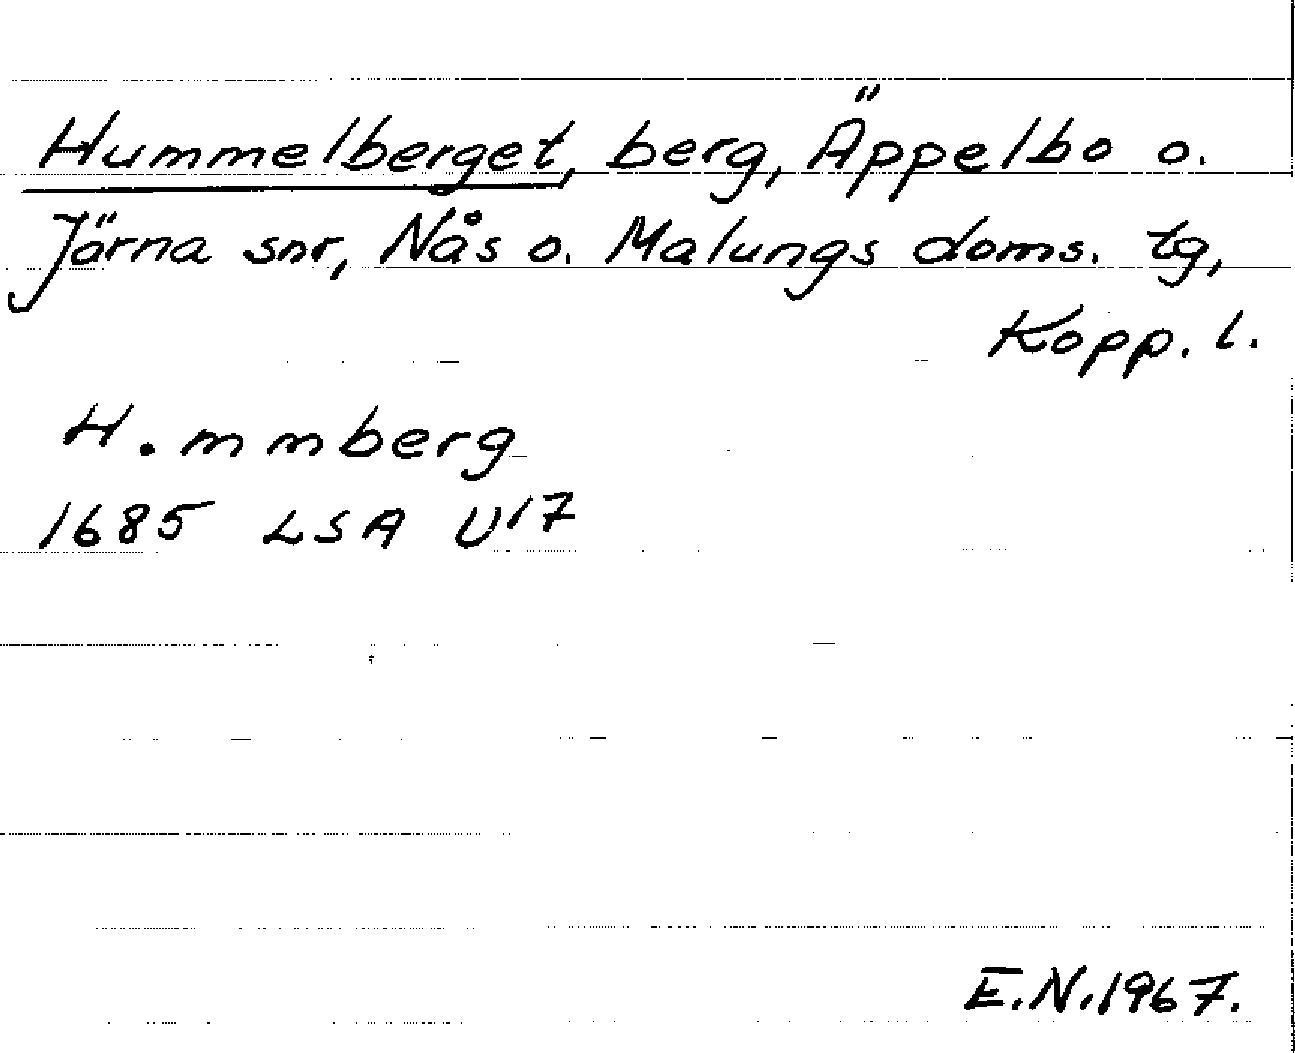 Hummelberget, berg, Äppelbo o.
Järna snr, Nås o. Malungs doms. tg,
Kopp. l.
H.mmberg
1685 LSA U17
E.N.1967.